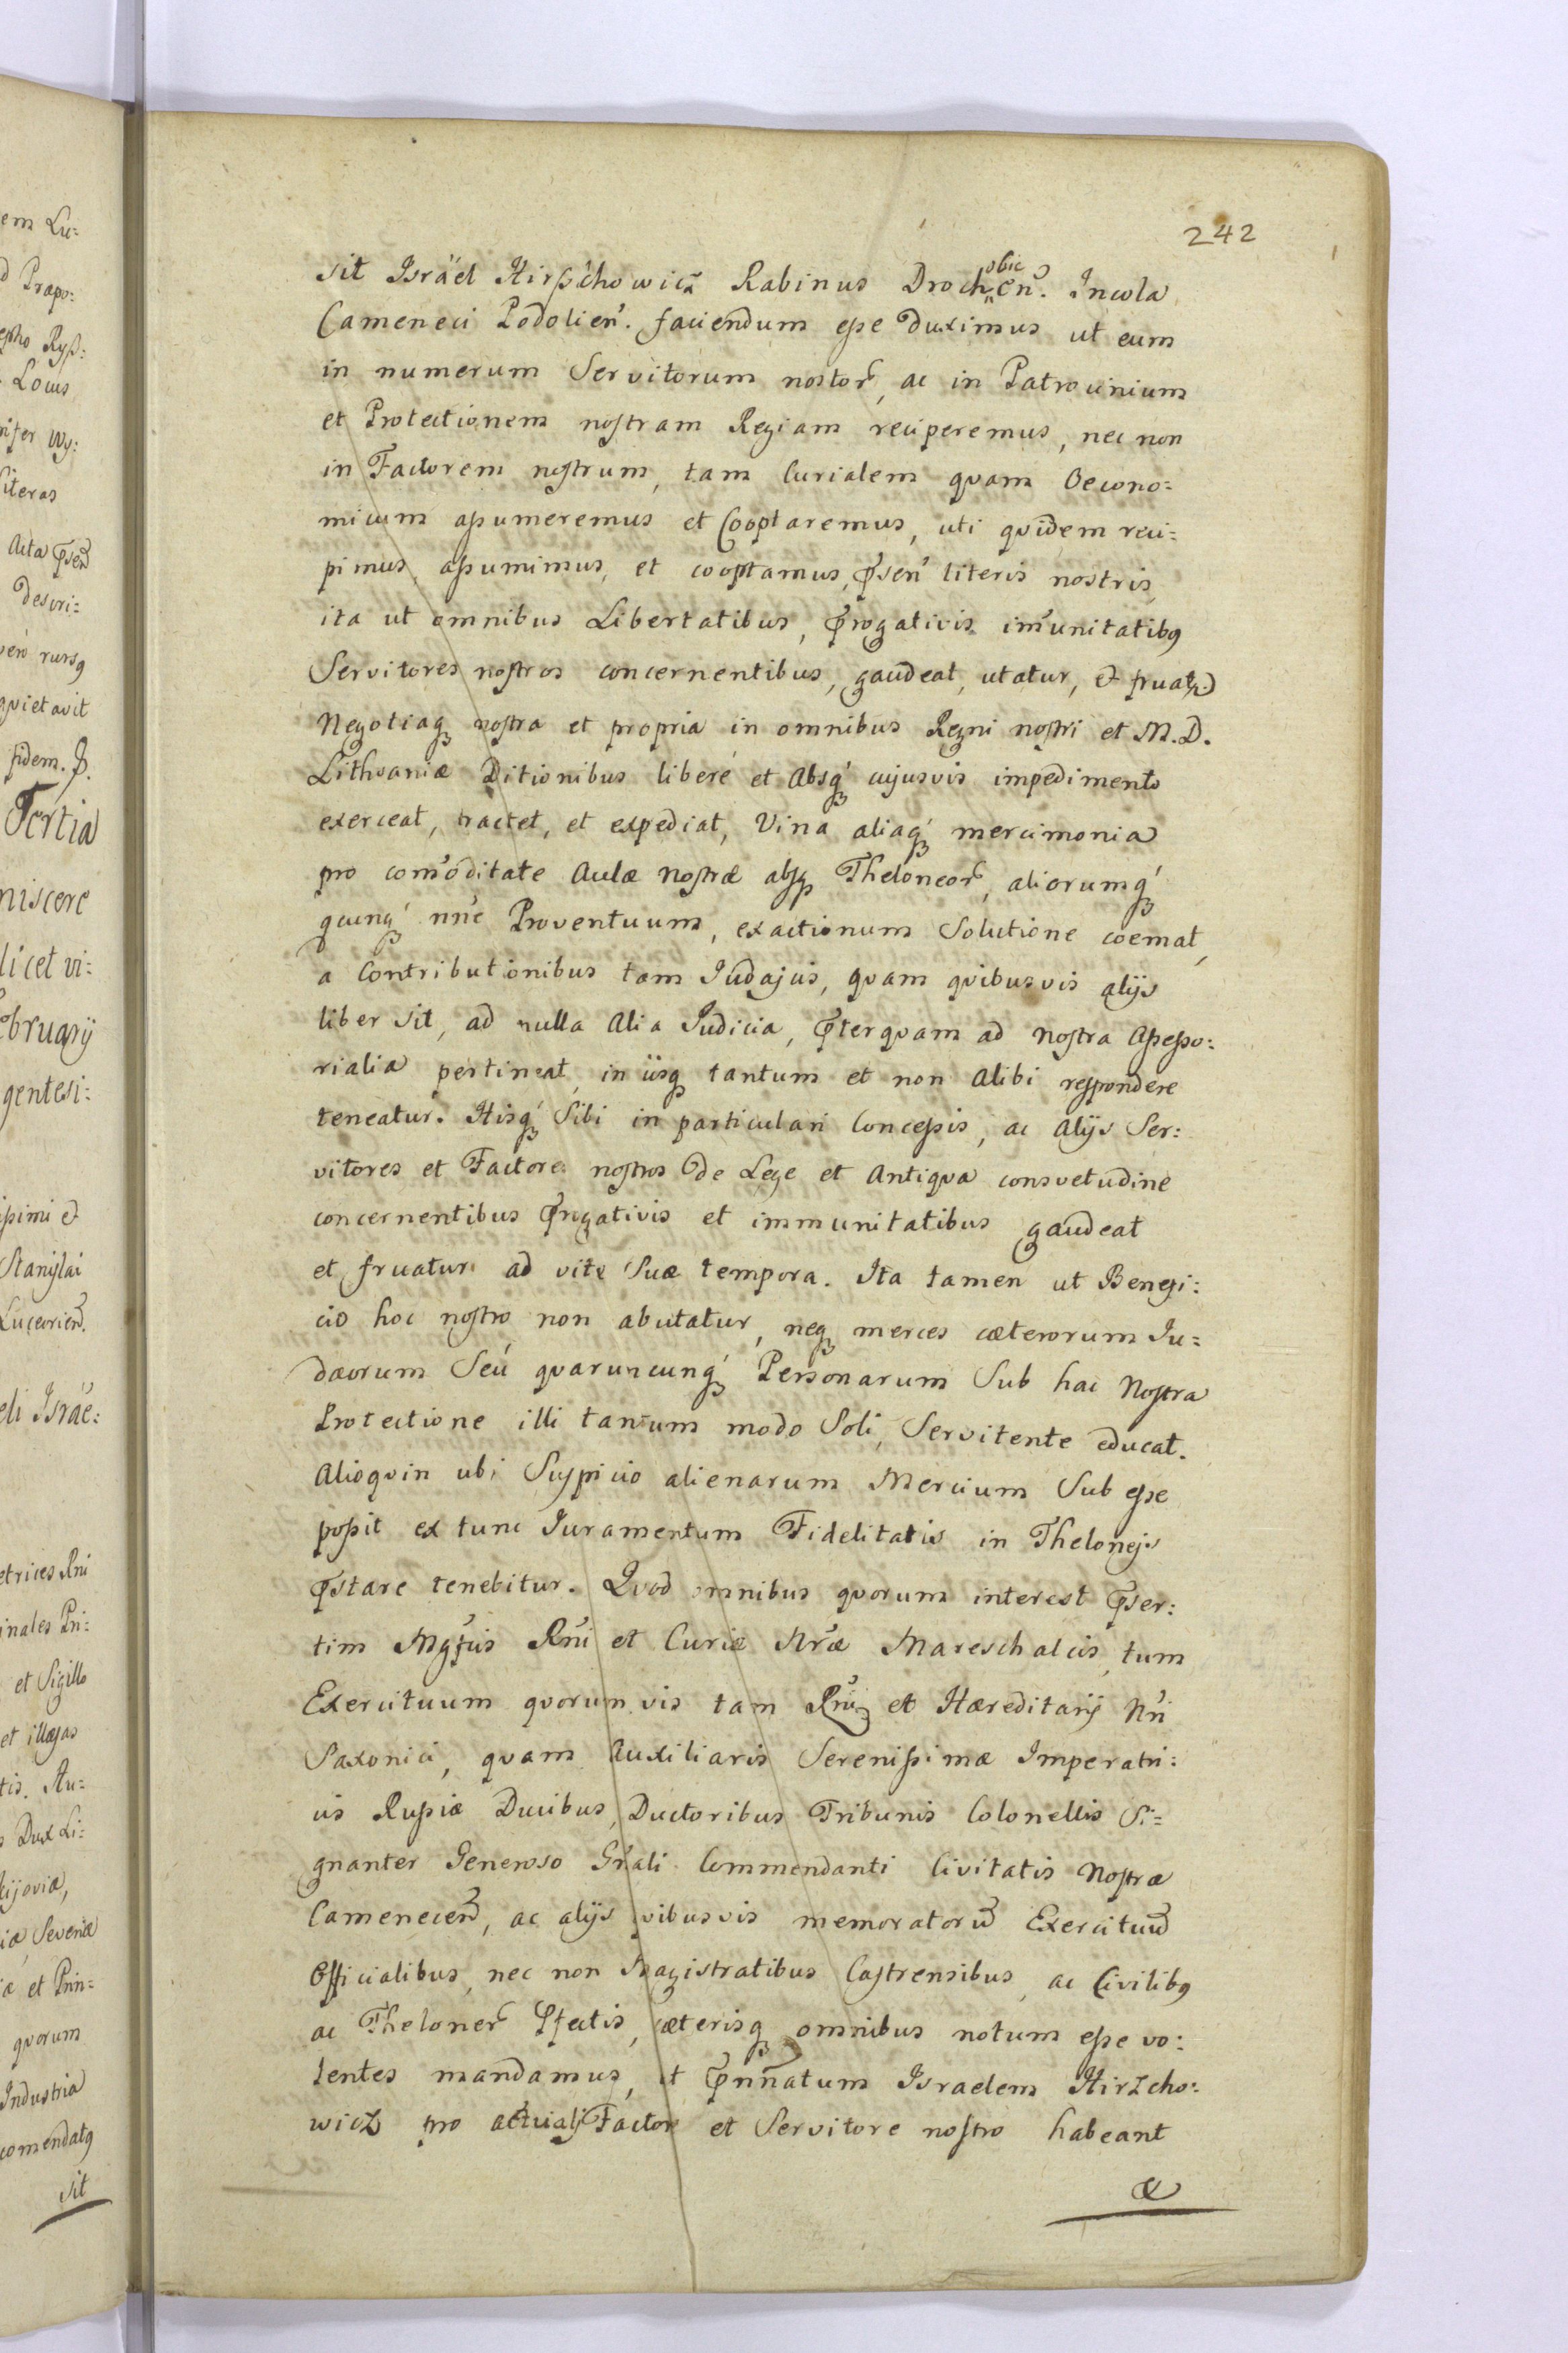 242
sit Israël Hirszchowicz Rabinus Drochobicen̄. Incola
Cameneci Podolien̄. faciendum esse duximus ut eum
in numerum Servitorum nostor̄, ac in Patrocinium
et Protectionem nostram Regiam reciperemus, nec non
in Factorem nostrum, tam Curialem quam Oecono:
micum assumeremus et Cooptaremus, uti quidem reci:
pimus, assumimus, et cooptamus, p̄sen̄ literis nostris,
ita ut omnibus Libertatibus, p̄rogativis im̄unitatibq
Servitores nostros concernentibus, gaudeat, utatur, et fruatr
Negotiaq nostra et propria in omnibus Regni nostri et M. D.
Lithvaniæ Ditionibus liberé et Absq́ cujusvis impedimento
exerceat, tractet, et expediat, Vina aliaq́ mercimonia
pro com̄oditate Aulæ nostræ absq Theloneor̄, aliorumq́
qcunq́ nn̄c Proventuum, exactionum Solutione coemat,
a Contributionibus tam Judajcis, quam quibusvis alijs
liber sit, ad nulla Alia Judicia, p̄terquam ad nostra Assesso:
rialia pertineat, in iisq tantum et non Alibi respondere
teneatur. Hisq́ Sibi in particulari Concessis, ac Alijs Ser:
vitores et Factores nostros De Lege et Antiqua consvetudine
concernentibus p̄rogativis et immunitatibus gaudeat
et fruatur ad vitæ Suæ tempora. Ita tamen ut Benefi:
cio hoc nostro non abutatur, neq merces cæterorum Ju:
dæorum Seú quaruncunq́ Personarum Sub hac Nostra
Protectione illi tantum modo Soli, Servitente educat.
Alioquin ubi Suspicio alienarum Mercium Sub esse
possit ex tunc Juramentum Fidelitatis in Thelonejs
p̄stare tenebitur. Quod omnibus quorum interest p̄ser:
tim Mgfcis Rn̄i et Curiæ Nr̄æ Mareschalcis, tum
Exercituum quorumvis tam Rn̄iq et Hæreditarij Nr̄i
Saxonici, quam Auxiliaris Serenissimæ Imperatri:
cis Russiæ Ducibus, Ductoribus Tribunis Colonellis Si:
gnanter Generoso Gn̄ali Commendanti Civitatis Nostræ
Camenecen̄, ac alijs quibusvis memoratorū Exercituū
Officialibus, nec non Magistratibus Castrensibus, ac Civilibq
ac Theloner̄ P̄fectis, cæterisq omnibus notum esse vo:
lentes mandamus, ut p̄nn̄atum Israelem Hirzcho:
wicz pro actuali Factore et Servitore nostro habeant
&
em Lu:
d Præpo:
Locus
literas
Acta p̄sen̄
descri:
vero rursq
quietavit
fidem.
Tertia
niscere
licet vi:
ebruarij
gentesi:
issimi et
Stanislai
Luceorien̄.
eli Israé:
etrices Rn̄i
inales Pri:
et Sigillo
et illæsas
tis. Au:
Dux Li:
Kijoviæ,
iæ, Severiæ
iæ et Prin:
quorum
Industria
comendatq
sit